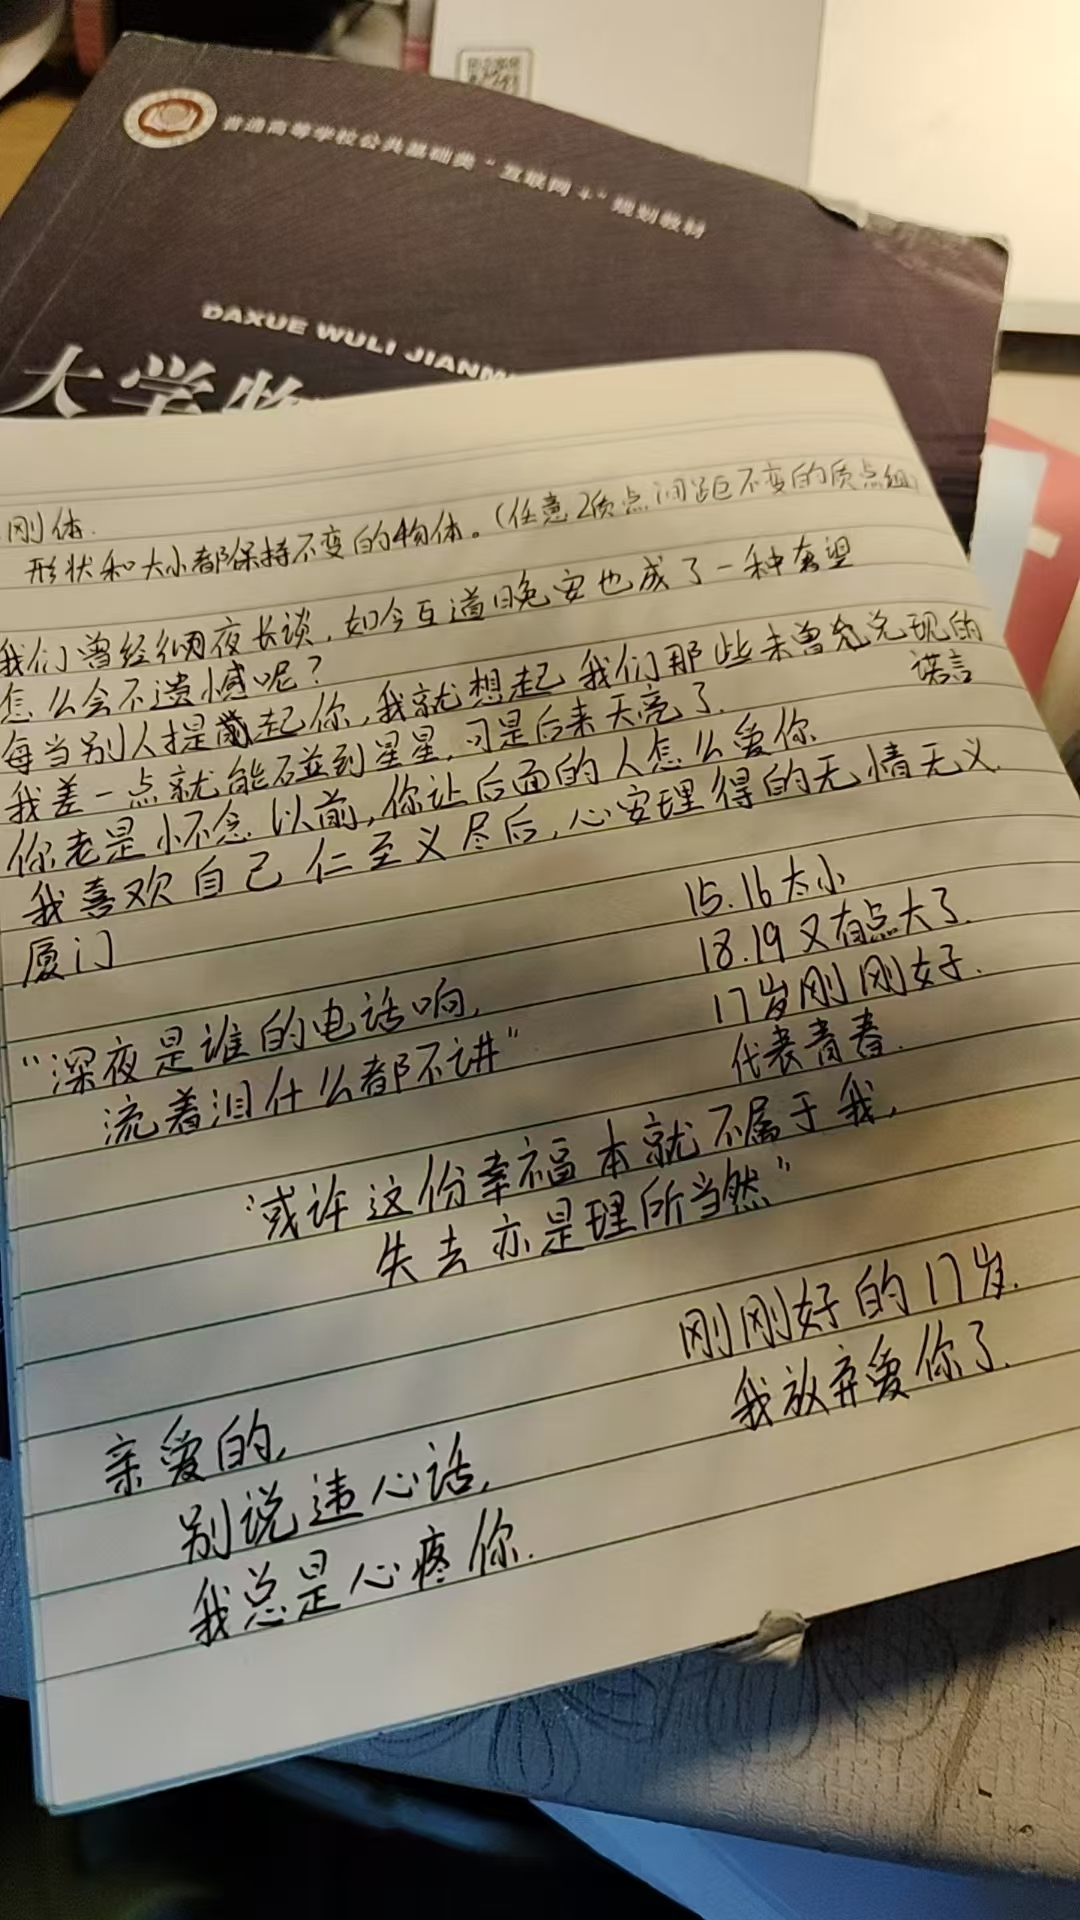 普通高等学校公共基础类"互联网+"规划教材
DAXUE WULI JIANM
大学物
刚体.
形状和大小都保持不变的物体。(任意2质点间距不变的质点组)
我们曾经彻夜长谈,如今互道晚安也成了一种奢望
怎么会不遗憾呢?
每当别人提起你,我就想起我们那些未曾兑现的
诺言
我差一点就能碰到星星,可是后来天亮了.
你老是怀念以前,你让后面的人怎么爱你
我喜欢自己仁至义尽后,心安理得的无情无义.
厦门
15.16太小
18.19又有点大了.
17岁刚刚好.
代表青春.
"深夜是谁的电话响,
流着泪什么都不讲"
"或许这份幸福本就不属于我,
失去亦是理所当然"
刚刚好的17岁.
我放弃爱你了.
亲爱的,
别说违心话,
我总是心疼你.